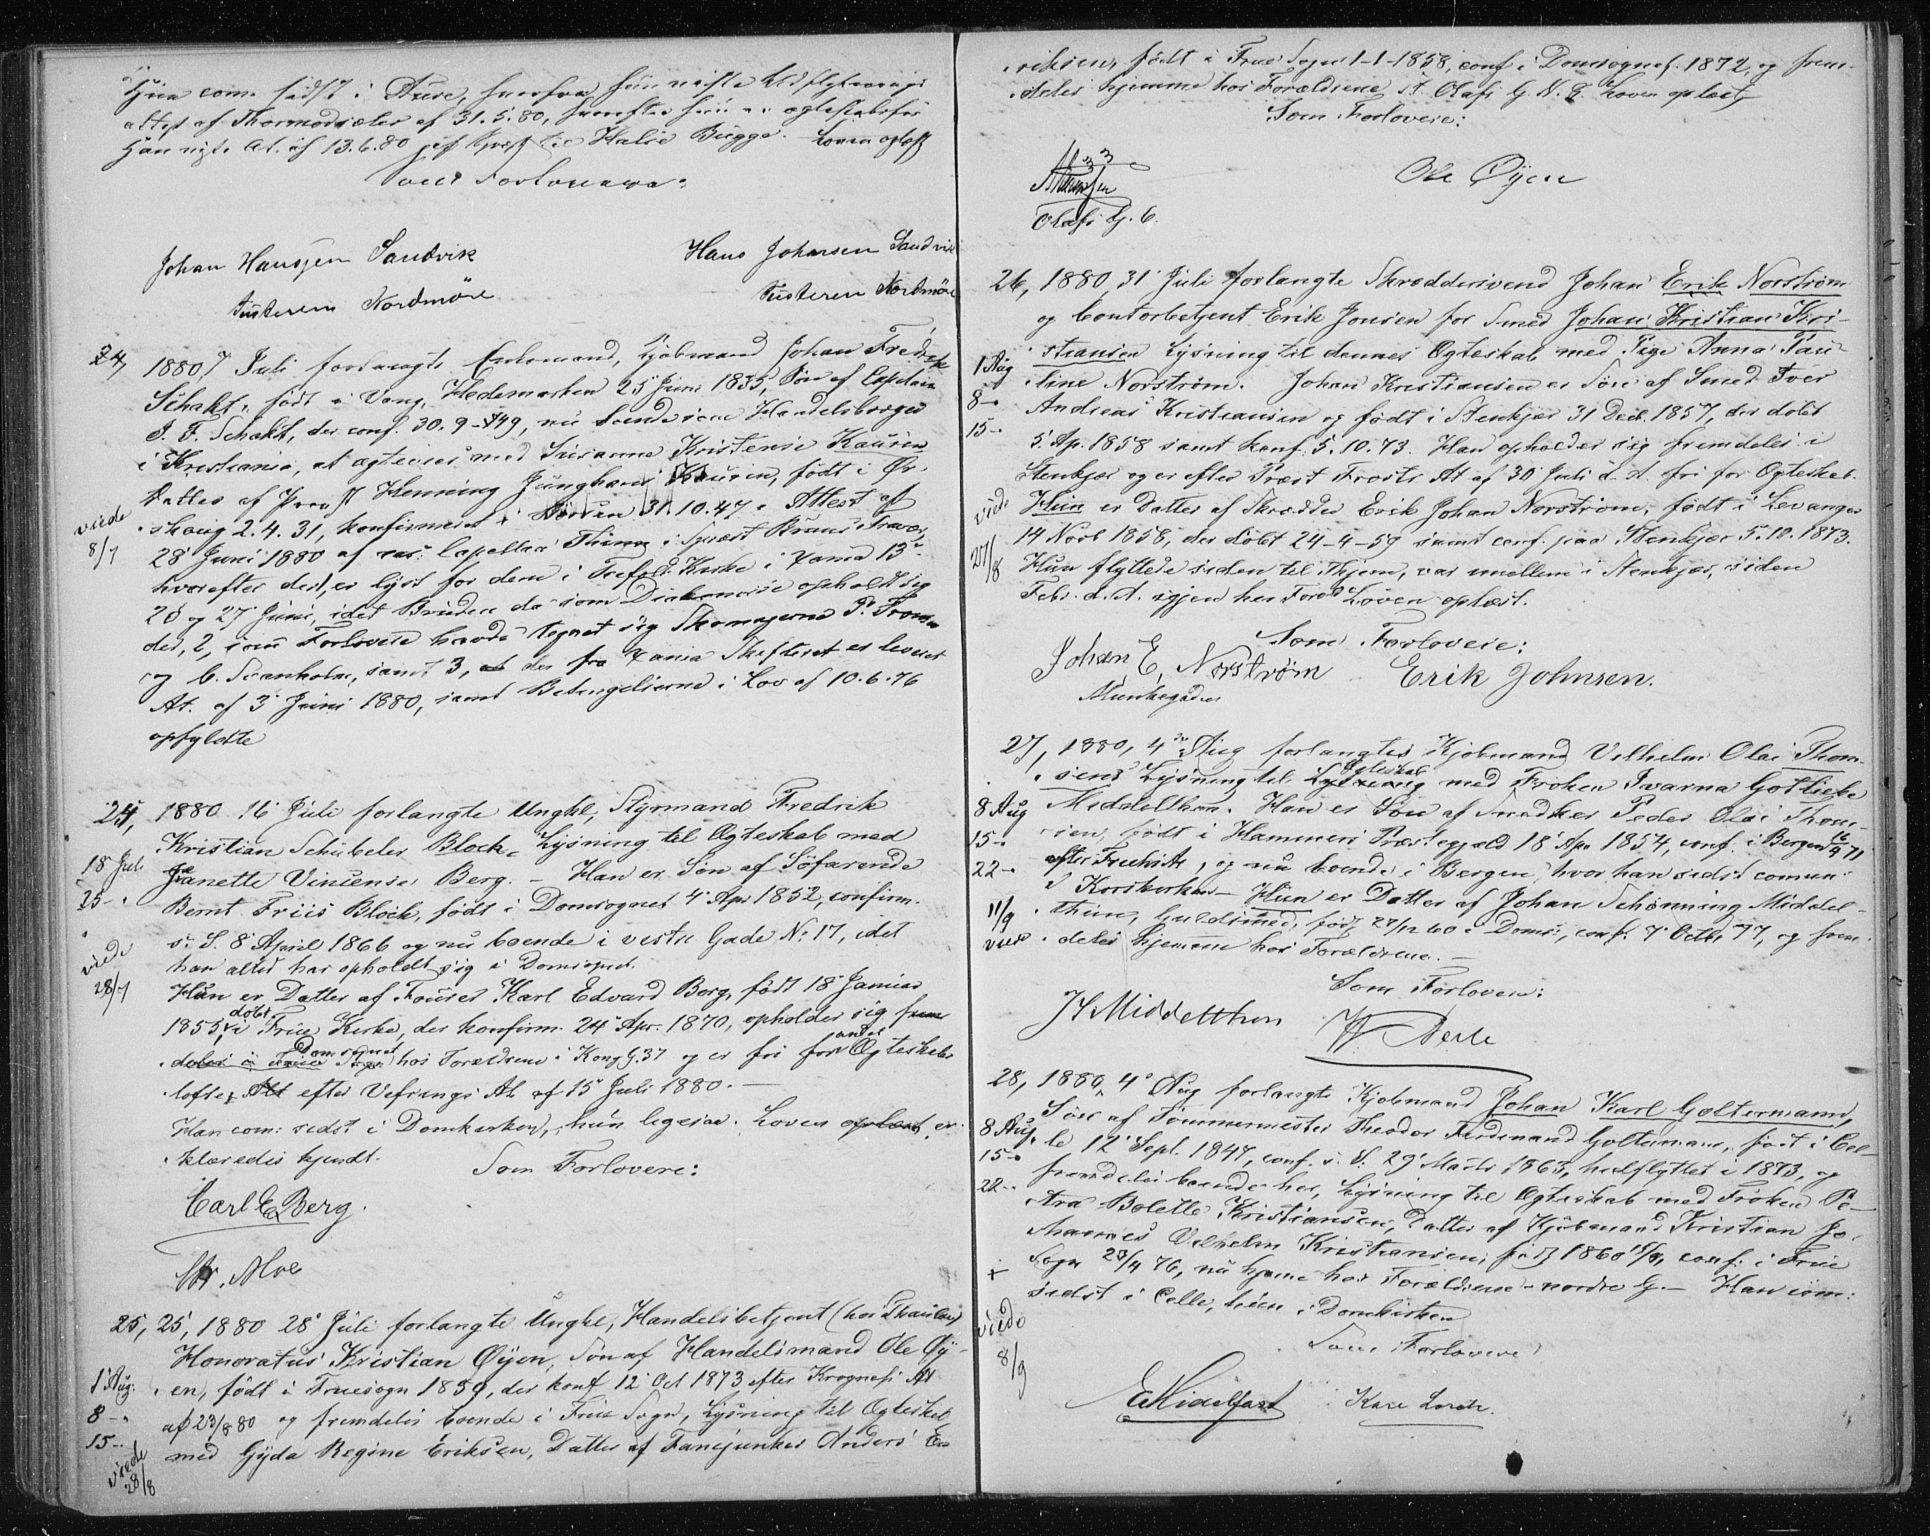 Hun com. sidst i Aure, hvorfra hun
attest af Thormodsæter af 31.5.80, hvorefter hun er ægteskabsfri
Han At. af 13.6.80 af Halse Bugge. Loven oplæst
Som Forlovere:
Johan Hanssen Sandvik
Hans Johansen Sandvik
Tusteren Nordmöre
Tusteren Nordmöre
24,
1880 7 Juli forlangte Enkemand, Kjøbmand Johan Fredrik
Schaft, født i Vang, Hedemarken 25 Juni 1835, Søn af Capitain
J. F. Schaft, der conf. 30.9-49, nu boende som Handelsborger
i Kristiania, at ægtevies med Susanne Kristense Kaurin
Datter af Provst Henning Junghans Kaurin, født i Ør-
skaug 2.4.31, konfirmeret i 31.10.47. Attest af
viede
8/7
28 Juni 1880 af res. Capellan Thinn i
hvorefter der 1, er lyst for dem i Trefold. Kirke i Xania 13
20 og 27 Juni, idet Bruden da som Diakonisse opholdt sig
der, 2, som Forlovere havde tegnet sig Skomagerne P.
og C. Svanholm, samt 3, at der fra Xania Skifteret er leveret
At. af 3 Juni 1880, samt Betingelserne i Lov af 10.6.76
opfyldte
24,
1880 16 Juli forlangte Ungkl, Styrmand Fredrik
Kristian Schübeler Block, Lysning til Ægteskab med
18 Juli
Janette Vincense Berg. - Han er Søn af Søfarende
25 -
Bernt Friis Block, født i Domsognet 4 Apr 1852, confirm.
s. S. 8 April 1866 og nu boende i vestre Gade No 17, idet
viede
28/7
han altid har opholdt sig i Domsognet.
Hun er Datter af Fourer Karl Edvard Berg, født 18 Januar
1855, døbt i Frue Kirke, der konfirm. 24 Apr. 1870, opholder sig frem-
deles i Frue Sogn Domsognet hos Forældrene i Kong G. 37 og er fri for andet Ægteskabs
løfte, Alt efter Vefrings At. af 15 Juli 1880. -
Han com: sidst i Domkirken, hun ligesaa. Loven oplæst er-
klæredes kjendt.
Som Forlovere:
Carl E Berg.
Moe
25,
25, 1880 28 Juli forlangte Ungkl, Handelsbetjent (hos Thaulow)
Honoratus Kristian Øyen, Søn af Handelsmand Ole Øy-
1 Aug.
en, født i Fruesogn 1859, der konf 12 Oct 1873 efter Krognes At
8 -
af 23/8 80 og fremdeles boende i Frue Sogn, Lysning til Ægteskab
15 -
med Gyda Regine Eriksen, Datter af Fanejunker Anders Er-
viede
28/8
riksen, født i Frue Sogn 1-1-1858, conf i Domsognet 1872, og frem-
deles hjemme hos Forældrene St. Olafs G. N. 8. Loven oplæst
Som Forlovere:
Olafs G. 6.
Ole Øyen
26, 1880, 31 Juli forlangte Skræddersvend Johan Erik Norstrøm
og Contorbetjent Erik Jonsen for Smed Johan Kristian Kri-
1 Aug
stiansen Lysning til dennes Ægteskab med Pige Anna Pau-
line Norstrøm. Johan Kristiansen er Søn af Smed Iver
8 -
Andreas Kristiansen og født i Stenkjær 31 Decb. 1857, der døbt
15 -
5 Apr. 1858 samt konf. 5.10.73. Han opholder sig fremdeles i
Stenkjær og er efter Præst Trosts At af 30 Juli d. A. fri for Ægteskab.
viede
27/8
Hun er Datter af Skrædder Erik Johan Norstrøm, født i Levanger
14 Novb 1858, der døbt 24-4-59 samt conf. paa Stenkjær 5.10.1873.
Hun flyttede siden til Thjem, var imellem i Stenkjær, siden
Febr. d. A. igjen her Loven oplæst.
Som Forlovere:
Johan E, Norstrøm
Erik Johnsen.
Munkegaden
27, 1880, 4de Aug forlangtes Kjøbmand Vilhelm Olai Thom-
sens Lysning til Ægteskab med Frøken Ivarna Gotliebe
8 Aug
Middelthon. Han er Søn af Snedker Peder Olai Thom-
15 -
sen, født i Hammers Præstegjeld 18 Apr 1854, conf. i Bergen
22 -
efter At, og nu boende i Bergen, hvor han sidst comun:
i Korskirken - Hun er Datter af Johan Schønning Middel-
11/9
thon, Guldsmed, født 27/12 60 i Doms:, conf. 7 Octbr 77, og frem-
viede
deles hjemme hos Forældrene. -
Som Forlovere:
Middelthon
28, 1880, 4 Aug forlangte Kjøbmand Johan Karl Goltermann,
Søn af Tømmermester Theodor Ferdinand Goltermann, født i Cel-
8 Aug.
le 12 Sept. 1847, conf. s. S. 29 Marts 1863, hidflyttet i 1873, og
15 -
fremdeles boende her, Lysning til Ægteskab med Frøken Pe-
22 -
tra Bolette Kristiansen, Datter af Kjøbmand Kristian Jo-
hannes Vilhelm Kristiansen, født 1860, conf. i Frue
+
Sogn 76, nu hjemme hos Forældrene - nordre G. - Han com:
sidst i Celle, hun i Domkirken
viede
8/9
Som Forlovere
E Hidelfart
Karl